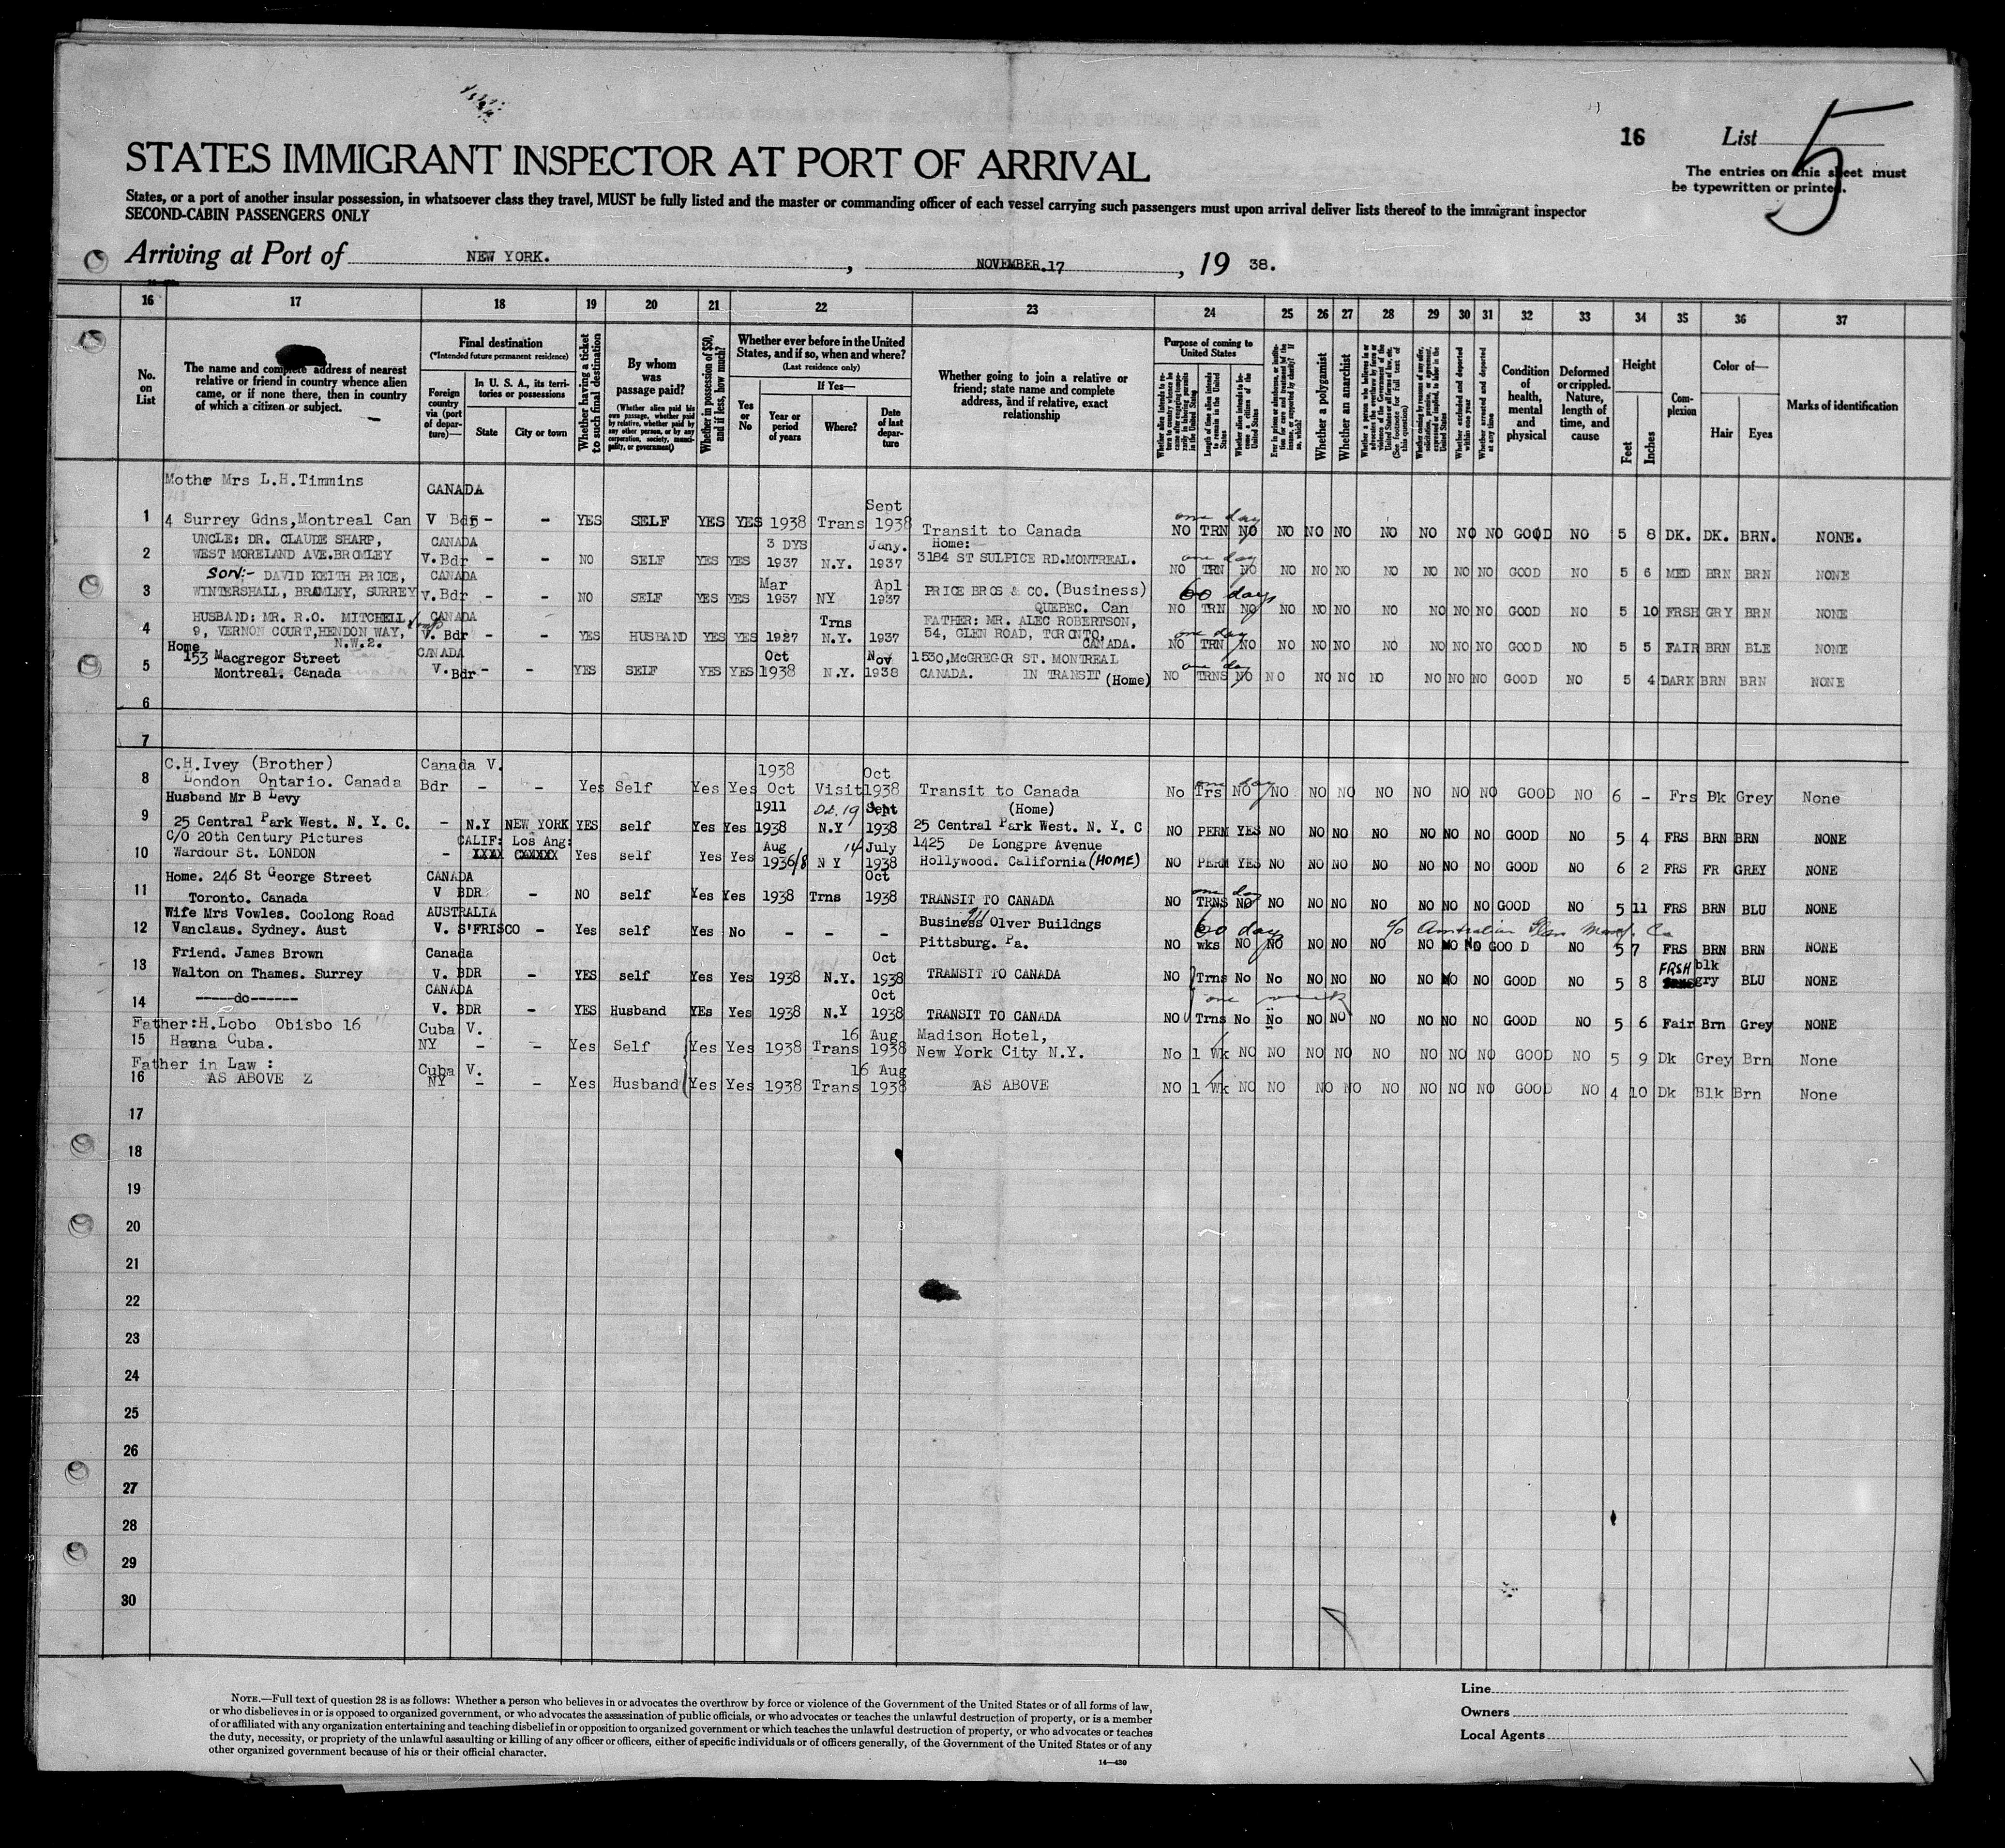 16 List 5
STATES IMMIGRANT INSPECTOR AT PORT OF ARRIVAL
The entries on this sheet must
be typewritten or printed.
States, or a port of another insular possession, in whatsoever class they travel, MUST be fully listed and the master or commanding officer of each vessel carrying such passengers must upon arrival deliver lists thereof to the immigrant inspector
SECOND-CABIN PASSENGERS ONLY
Arriving at Port of NEW YORK. , NOVEMBER.17 , 19 38.
16 17 18 19 20 21 22 23 24 25 26 27 28 29 30 31 32 33 34 35 36 37
No. on List
The name and complete address of nearest
relative or friend in country whence alien
came, or if none there, then in country
of which a citizen or subject.
Final destination
(*Intended future permanent residence)
Foreign country via (port of departure)—
In U. S. A., its territories or possessions
State City or town
Whether having a ticket to such final destination
By whom was passage paid?
(Whether alien paid his own passage, whether paid by relative, whether paid by any other person, or by any corporation, society, municipality, or government)
Whether in possession of $50, and if less, how much?
Whether ever before in the United States, and if so, when and where?
(Last residence only)
Yes or No
If Yes—
Year or period of years
Where?
Date of last departure
Whether going to join a relative or
friend; state name and complete
address, and if relative, exact
relationship
Purpose of coming to United States
Length of time alien intends to remain in the United States
Whether alien intends to become a citizen of the United States
Whether a polygamist
Whether an anarchist
Whether arrested and deported at any time
Condition of health, mental and physical
Deformed or crippled. Nature, length of time, and cause
Height
Feet Inches
Complexion
Color of—
Hair Eyes
Marks of identification
Mothe Mrs L.H.Timmins CANADA Sept one day
1 4 Surrey Gdns,Montreal Can V Bdr - - YES SELF YES YES 1938 Trans 1938 Transit to Canada NO TRN NO NO NO NO NO NO NO NO GOOD NO 5 8 DK. DK. BRN. NONE.
UNCLE: DR. CLAUDE SHARP, CANADA 3 DYS Jany. Home:- one day
2 WEST MORELAND AVE.BROMLEY V.Bdr - - NO SELF YES YES 1937 N.Y. 1937 3184 ST SULPICE RD.MONTREAL. NO TRN NO NO NO NO NO NO NO NO GOOD NO 5 6 MED BRN BRN NONE
SON:- DAVID KEITH PRICE, CANADA Mar Apl PRICE BROS & CO. (Business) 60 days
3 WINTERSHALL, BRAMLEY, SURREY V.Bdr - - NO SELF YES YES 1937 NY 1937 QUEBEC. Can NO TRN NO NO NO NO NO NO NO NO GOOD NO 5 10 FRSH GRY BRN NONE
HUSBAND: MR. R.O. MITCHELL CANADA Trns FATHER: MR. ALEC ROBERTSON, one day
4 9, VERNON COURT,HENDON WAY, V. Bdr - - YES HUSBAND YES YES 1927 N.Y. 1937 54, GLEN ROAD, TORONTO, NO TRN NO NO NO NO NO NO NO NO GOOD NO 5 5 FAIR BRN BLE NONE
N.W.2. CANADA.
Home CANADA Oct Nov 1530,McGREGOR ST. MONTREAL one day
5 153 Macgregor Street V. Bdr - - YES SELF YES YES 1938 N.Y. 1938 CANADA. IN TRANSIT (Home) NO TRNS NO NO NO NO NO NO NO NO GOOD NO 5 4 DARK BRN BRN NONE
Montreal. Canada
6
7
C.H.Ivey (Brother) Canada V. 1938 Oct one day
8 London Ontario. Canada Bdr - - Yes Self Yes Yes Oct Visit 1938 Transit to Canada No Trs NO NO NO NO NO NO NO NO GOOD NO 6 - Frs Bk Grey None
Husband Mr B Levy 1911 Sept (Home)
9 25 Central Park West. N. Y. C. - N.Y NEW YORK YES self Yes Yes 1938 N.Y 1938 25 Central Park West. N. Y. C NO PERM YES NO NO NO NO NO NO NO GOOD NO 5 4 FRS BRN BRN NONE
C/O 20th Century Pictures CALIF: Los Ang: Aug 14 July 1425 De Longpre Avenue
10 Wardour St. LONDON - XXXX Yes self Yes Yes 1936/8 N Y 1938 Hollywood. California (HOME) NO PERM YES NO NO NO NO NO NO NO GOOD NO 6 2 FRS FR GREY NONE
Home. 246 St George Street CANADA Oct one day
11 Toronto. Canada V BDR - NO self Yes Yes 1938 Trns 1938 TRANSIT TO CANADA NO TRNS NO NO NO NO NO NO NO NO GOOD NO 5 11 FRS BRN BLU NONE
Wife Mrs Vowles. Coolong Road AUSTRALIA Business Olver Buildngs 60 days c/o Australian Glass Manf. Co
12 Vanclaus. Sydney. Aust V. S'FRISCO - Yes self Yes No - - - Pittsburg. Pa. NO wks NO NO NO NO NO NO NO NO GOO D NO 5 7 FRS BRN BRN NONE
Friend. James Brown Canada Oct FRSH blk
13 Walton on Thames. Surrey V. BDR - YES self Yes Yes 1938 N.Y. 1938 TRANSIT TO CANADA NO Trns No No NO NO NO NO NO NO GOOD NO 5 8 gry BLU NONE
-----do------ CANADA Oct one week
14 V. BDR - YES Husband YEs Yes 1938 N.Y 1938 TRANSIT TO CANADA NO Trns No No NO NO NO NO NO NO GOOD NO 5 6 Fair Brn Grey NONE
Father:H.Lobo Obisbo 16 Cuba V. 16 Aug Madison Hotel,
15 Havna Cuba. NY - - Yes Self Yes Yes 1938 Trans 1938 New York City N.Y. No 1 Wk NO NO NO NO NO NO NO NO GOOD NO 5 9 Dk Grey Brn None
Father in Law : Cuba V. 16 Aug
16 AS ABOVE Z NY - - Yes Husband Yes Yes 1938 Trans 1938 AS ABOVE NO 1 Wk NO NO NO NO NO NO NO NO GOOD NO 4 10 Dk Blk Brn None
17
18
19
20
21
22
23
24
25
26
27
28
29
30
NOTE.—Full text of question 28 is as follows: Whether a person who believes in or advocates the overthrow by force or violence of the Government of the United States or of all forms of law,
or who disbelieves in or is opposed to organized government, or who advocates the assassination of public officials, or who advocates or teaches the unlawful destruction of property, or is a member
of or affiliated with any organization entertaining and teaching disbelief in or opposition to organized government or which teaches the unlawful destruction of property, or who advocates or teaches
the duty, necessity, or propriety of the unlawful assaulting or killing of any officer or officers, either of specific individuals or of officers generally, of the Government of the United States or of any
other organized government because of his or their official character.
14—430
Line
Owners
Local Agents